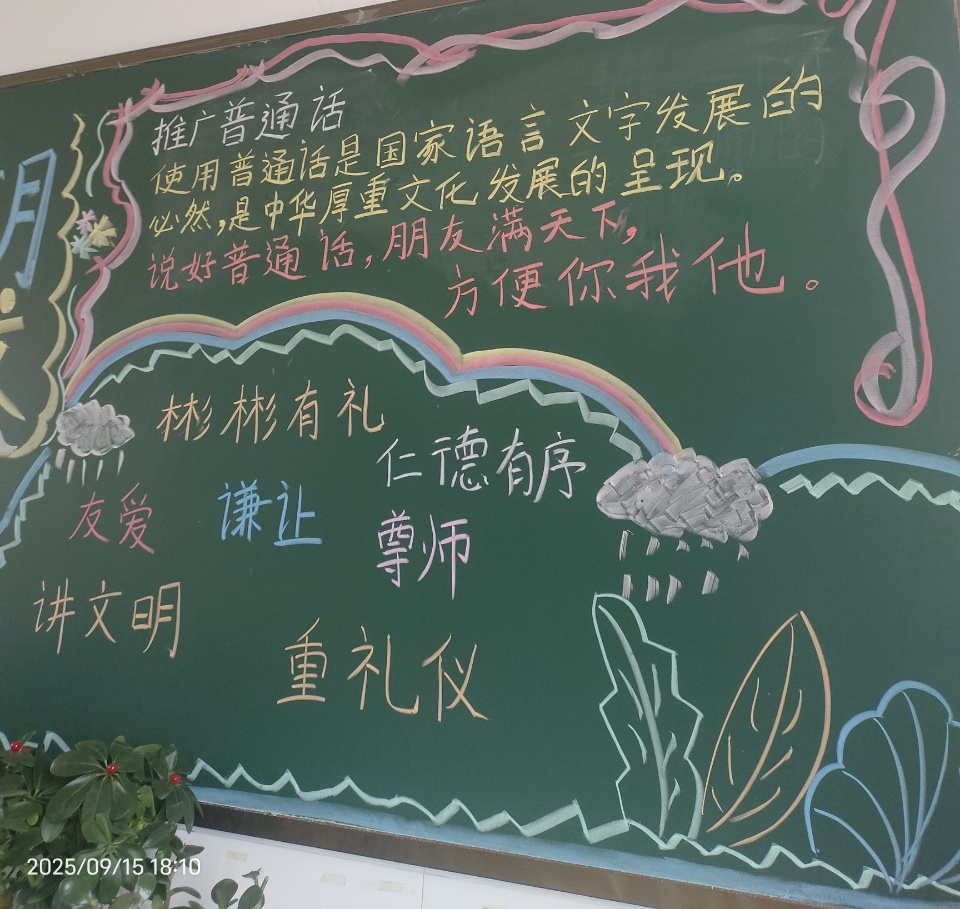 明
推广普通话
使用普通话是国家语言文字发展的
必然,是中华厚重文化发展的呈现。
说好普通话,朋友满天下,
方便你我他。
彬彬有礼
仁德有序
友爱 谦让
尊师
讲文明
重礼仪
2025/09/15 18:10